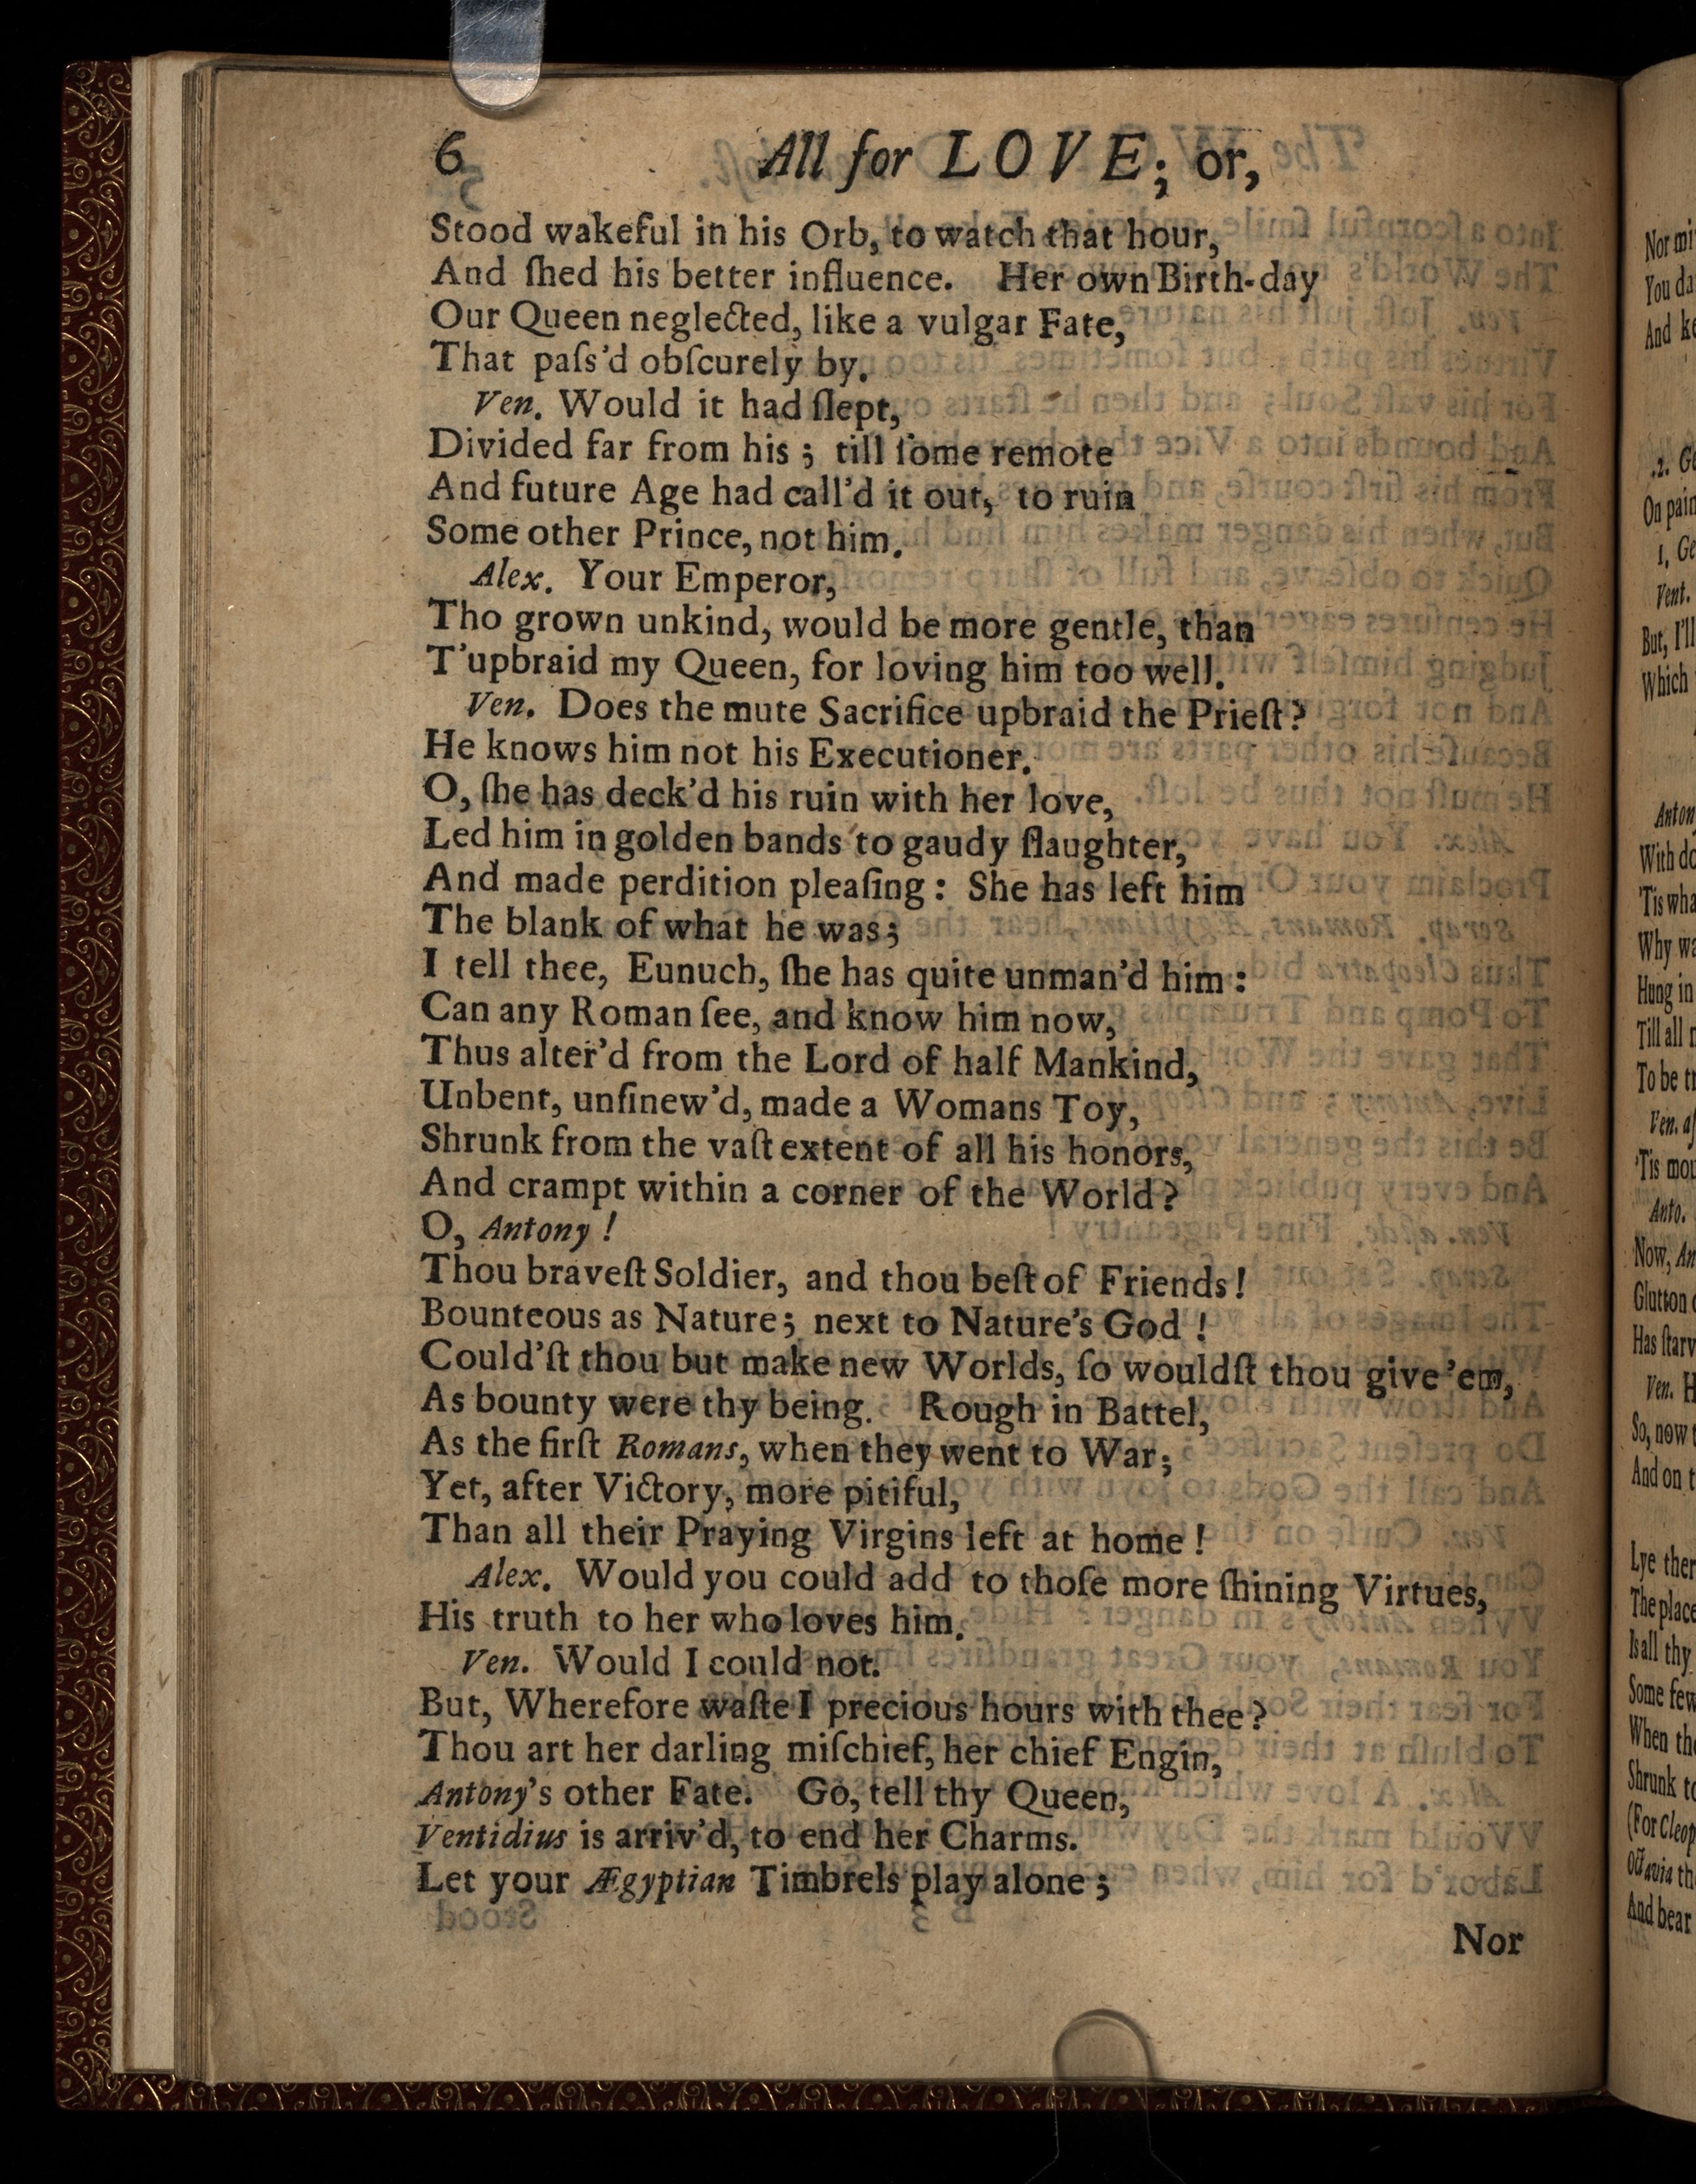 6 All for LOVE; or,
Stood wakeful in his Orb, to watch that hour,
And ſhed his better influence. Her own Birth-day
Our Queen neglected, like a vulgar Fate,
That paſs'd obſcurely by.
Ven. Would it had ſlept,
Divided far from his; till ſome remote
And future Age had call'd it out, to ruin
Some other Prince, not him.
Alex. Your Emperor,
Tho grown unkind, would be more gentle, than
T'upbraid my Queen, for loving him too well.
Ven. Does the mute Sacrifice upbraid the Prieſt?
He knows him not his Executioner.
O, ſhe has deck'd his ruin with her love,
Led him in golden bands to gaudy ſlaughter,
And made perdition pleaſing: She has left him
The blank of what he was;
I tell thee, Eunuch, ſhe has quite unman'd him:
Can any Roman ſee, and know him now,
Thus alter'd from the Lord of half Mankind,
Unbent, unſinew'd, made a Womans Toy,
Shrunk from the vaſt extent of all his honors,
And crampt within a corner of the World?
O, Antony!
Thou braveſt Soldier, and thou beſt of Friends!
Bounteous as Nature; next to Nature's God!
Could'ſt thou but make new Worlds, ſo wouldſt thou give 'em,
As bounty were thy being. Rough in Battel,
As the firſt Romans, when they went to War;
Yet, after Victory, more pitiful,
Than all their Praying Virgins left at home!
Alex. Would you could add to thoſe more ſhining Virtues,
His truth to her who loves him.
Ven. Would I could not.
But, Wherefore waſte I precious hours with thee?
Thou art her darling miſchief, her chief Engin,
Antony's other Fate. Go, tell thy Queen,
Ventidius is arriv'd, to end her Charms.
Let your Ægyptian Timbrels play alone;
Nor
Nor mi
You da
And ke
2. Ge
On pain
1. Ge
Vent.
But, I'll
Which
Anton
With do
'Tis wha
Why wa
Hung in
Till all
To be tr
Ven. aſ
'Tis mou
Anto.
Now, An
Glutton
Has ſtarv
Ven. H
So, now t
And on t
Lye ther
The place
Is all thy
Some few
When the
Shrunk to
(For Cleop
Octavia th
And bear